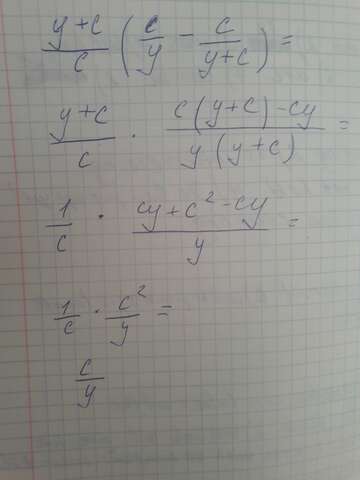 (y+c)/c (c/y - c/(y+c)) =
(y+c)/c · (c(y+c)-cy)/(y(y+c)) =
1/c · (cy+c²-cy)/y =
1/c · c²/y =
c/y